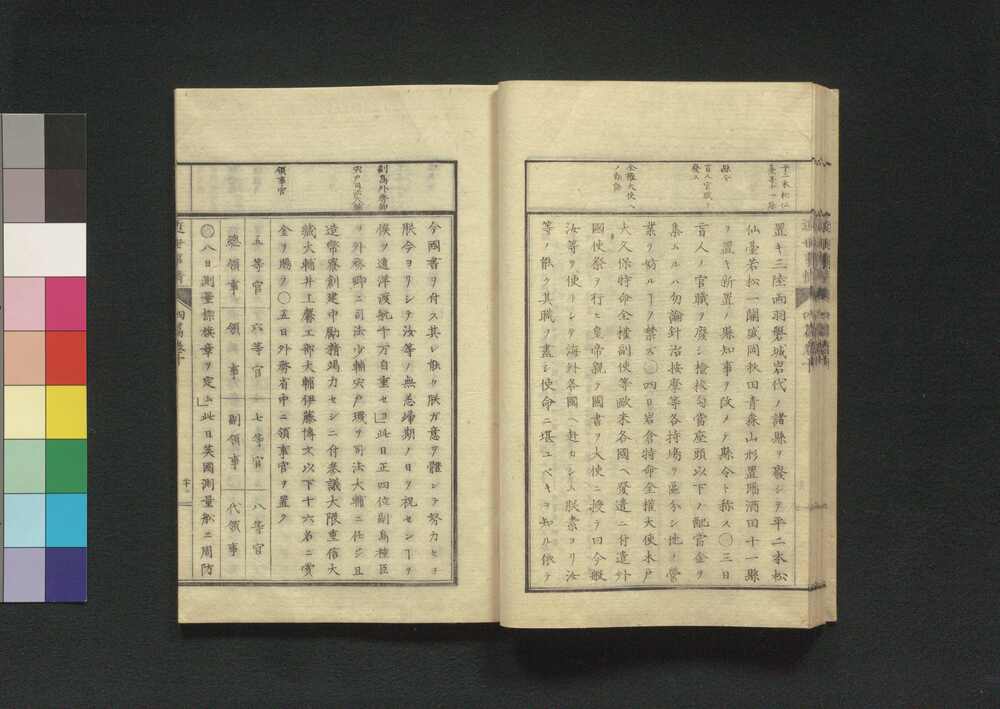 平二本松仙
臺等十一縣
縣令
盲人官職ヲ
廢ス
全權大使ヘ
ノ勅語
置キ三陸兩羽磐城岩代ノ諸縣ヲ廢シテ平二本松
仙臺若松一關盛岡秋田青森山形置賜酒田十一縣
ヲ置キ新置ノ縣知事ヲ改メテ縣令ト称ス〇三日
盲人ノ官職ヲ廢シ檢校勾當座頭以下ノ配當金ヲ
集ムルハ勿論針治按摩等各持場ヲ區分シ他ノ營
業ヲ妨ルヿヲ禁ズ〇四日岩倉特命全權大使木戸
大久保特命全權副使等歐米各國ヘ發遣ニ付遣外
國使祭ヲ行ヒ皇帝親ヲ國書ヲ大使ニ授テ曰今般
汝等ヲ使トシテ海外各國ニ赴カシム朕素ヨリ汝
等ノ能ク其職ヲ盡シ使命ニ堪ユベキヲ知ル依テ
副島外務卿
宍戸司法大輔
領事官
今國書ヲ付ス其レ能ク朕ガ意ヲ體シテ努力セヨ
朕今ヨリシテ汝等ノ無恙歸期ノ日ヲ祝センヿヲ
俟ツ遠洋渡航千万自重セヨ」此日正四位副島種臣
ヲ外務卿ニ司法少輔宍戸璣ヲ司法大輔ニ任ジ且
造幣寮創建中勵精竭力セシニ付參議大隈重信大
藏大輔井上馨工部大輔伊藤博文以下十六名ニ賞
金ヲ賜フ〇五日外務省中ニ領事官ヲ置ク
五等官 六等官 七等官 八等官
總領事 領事 副領事 代領事
〇八日測量標旗章ヲ定ム」此日英國測量船ニ周防